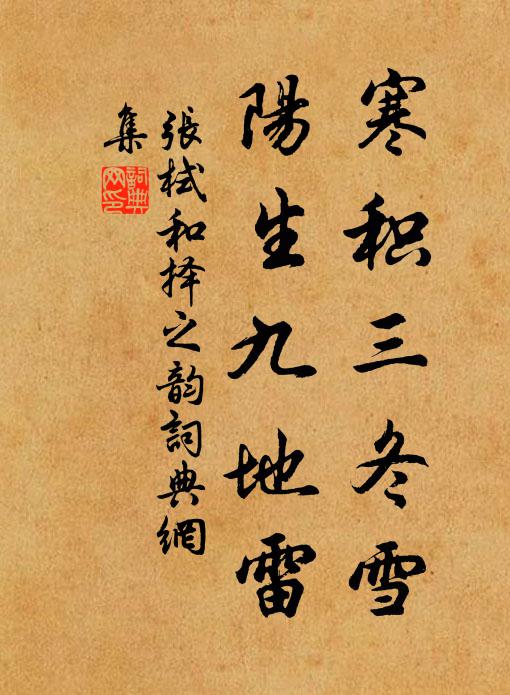 寒积三冬雪
陽生九地雷
張栻和择之韵詞典網
集
詞典网印